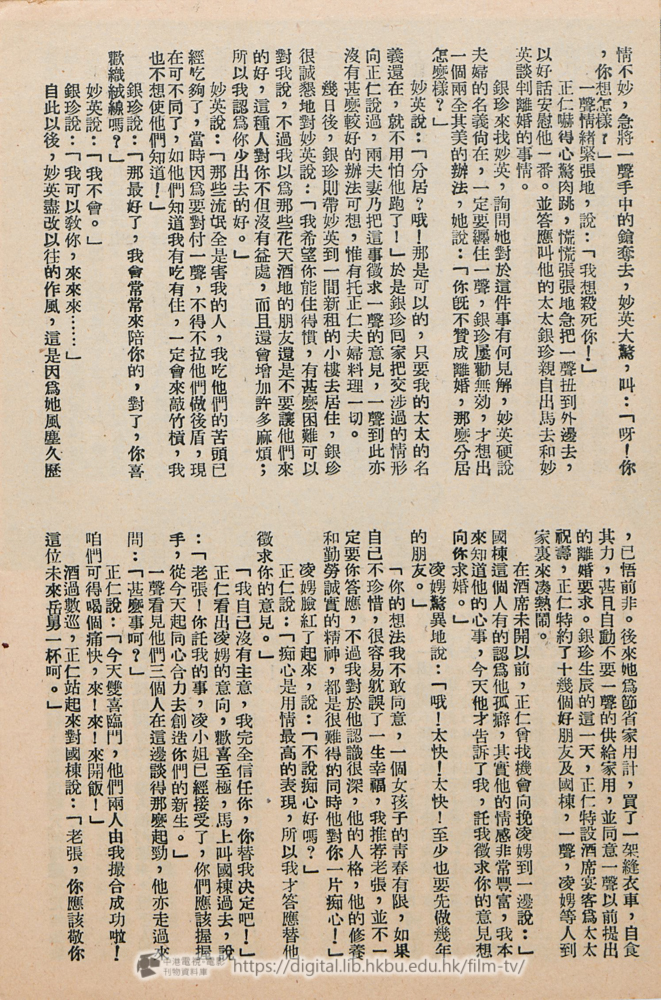 情不妙，急將一聲手中的鎗奪去，妙英大驚，叫：「呀！你
，你想怎樣？」
一聲情緒緊張地，說：「我想殺死你！」
正仁嚇得心驚肉跳，慌慌張張地急把一聲扭到外邊去，
以好話安慰他一番。並答應叫他的太太銀珍親自出馬去和妙
英談判離婚的事情。
銀珍來找妙英，詢問她對於這件事有何見解，妙英硬說
夫婦的名義尙在，一定要纏住一聲，銀珍屢勸無効，才想出
一個兩全其美的辦法，她說：「你旣不贊成離婚，那麼分居
怎麼樣？」
妙英說：「分居？哦！那是可以的，只要我的太太的名
義還在，就不用怕他跑了！」於是銀珍囘家把交涉過的情形
向正仁說過，兩夫妻乃把這事徵求一聲的意見，一聲到此亦
沒有甚麼較好的辦法可想，惟有托正仁夫婦料理一切。
幾日後，銀珍則帶妙英到一間新租的小樓去居住，銀珍
很誠懇地對妙英說：「我希望你能住得慣，有甚麼困難可以
對我說，不過我以爲那些花天酒地的朋友還是不要讓他們來
的好，這種人對你不但沒有益處，而且還會增加許多麻煩；
所以我認爲你少出去的好。」
妙英說：「那些流氓全是害我的人，我吃他們的苦頭已
經吃夠了，當時因爲要對付一聲，不得不拉他們做後盾，現
在可不同了，如他們知道我有吃有住，一定會來敲竹槓，我
也不想使他們知道！」
銀珍說：「那最好了，我會常常來陪你的，對了，你喜
歡織絨線嗎？」
妙英說：「我不會。」
銀珍說：「我可以敎你，來來來……」
自此以後，妙英盡改以往的作風，這是因爲她風塵久歷
，已悟前非。後來她爲節省家用計，買了一架縫衣車，自食
其力，甚且自動不要一聲的供給家用，並同意一聲以前提出
的離婚要求。銀珍生辰的這一天，正仁特設酒席宴客爲太太
祝壽，正仁特約了十幾個好朋友及國棟，一聲，凌娉等人到
家裏來凑熱鬧。
在酒席未開以前，正仁曾找機會向挽凌娉到一邊說：」
國棟這個人有的認爲他孤癖，其實他的情感非常豐富，我本
來知道他的心事，今天他才告訴了我，託我徵求你的意見想
向你求婚。」
凌娉驚異地說：「哦！太快！太快！至少也要先做幾年
的朋友。」
「你的想法我不敢同意，一個女孩子的靑春有限，如果
自己不珍惜，很容易躭誤了一生幸福，我推荐老張，並不一
定要你答應，不過我對於他認識很深，他的人格，他的修養
和勤勞誠實的精神，都是很難得的同時他對你一片痴心！」
凌娉臉紅了起來，說：「不說痴心好嗎？」
正仁說：「痴心是用情最高的表現，所以我才答應替他
徵求你的意見。」
「我自己沒有主意，我完全信任你，你替我决定吧！」
正仁看出凌娉的意向，歡喜至極，馬上叫國棟過去，說
：「老張！你託我的事，凌小姐已經接受了，你們應該握握
手，從今天起同心合力去創造你們的新生。」
一聲看見他們三個人在這邊談得那麼起勁，他亦走過來
問：「甚麼事呵？」
正仁說：「今天雙喜臨門，他們兩人由我撮合成功啦！
咱們可得喝個痛快，來！來！來開飯！」
酒過數巡，正仁站起來對國棟說：「老張，你應該敬你
這位未來岳舅一杯呵。」
中港電視·電影
刊物資料庫
https://digital.lib.hkbu.edu.hk/film-tv/